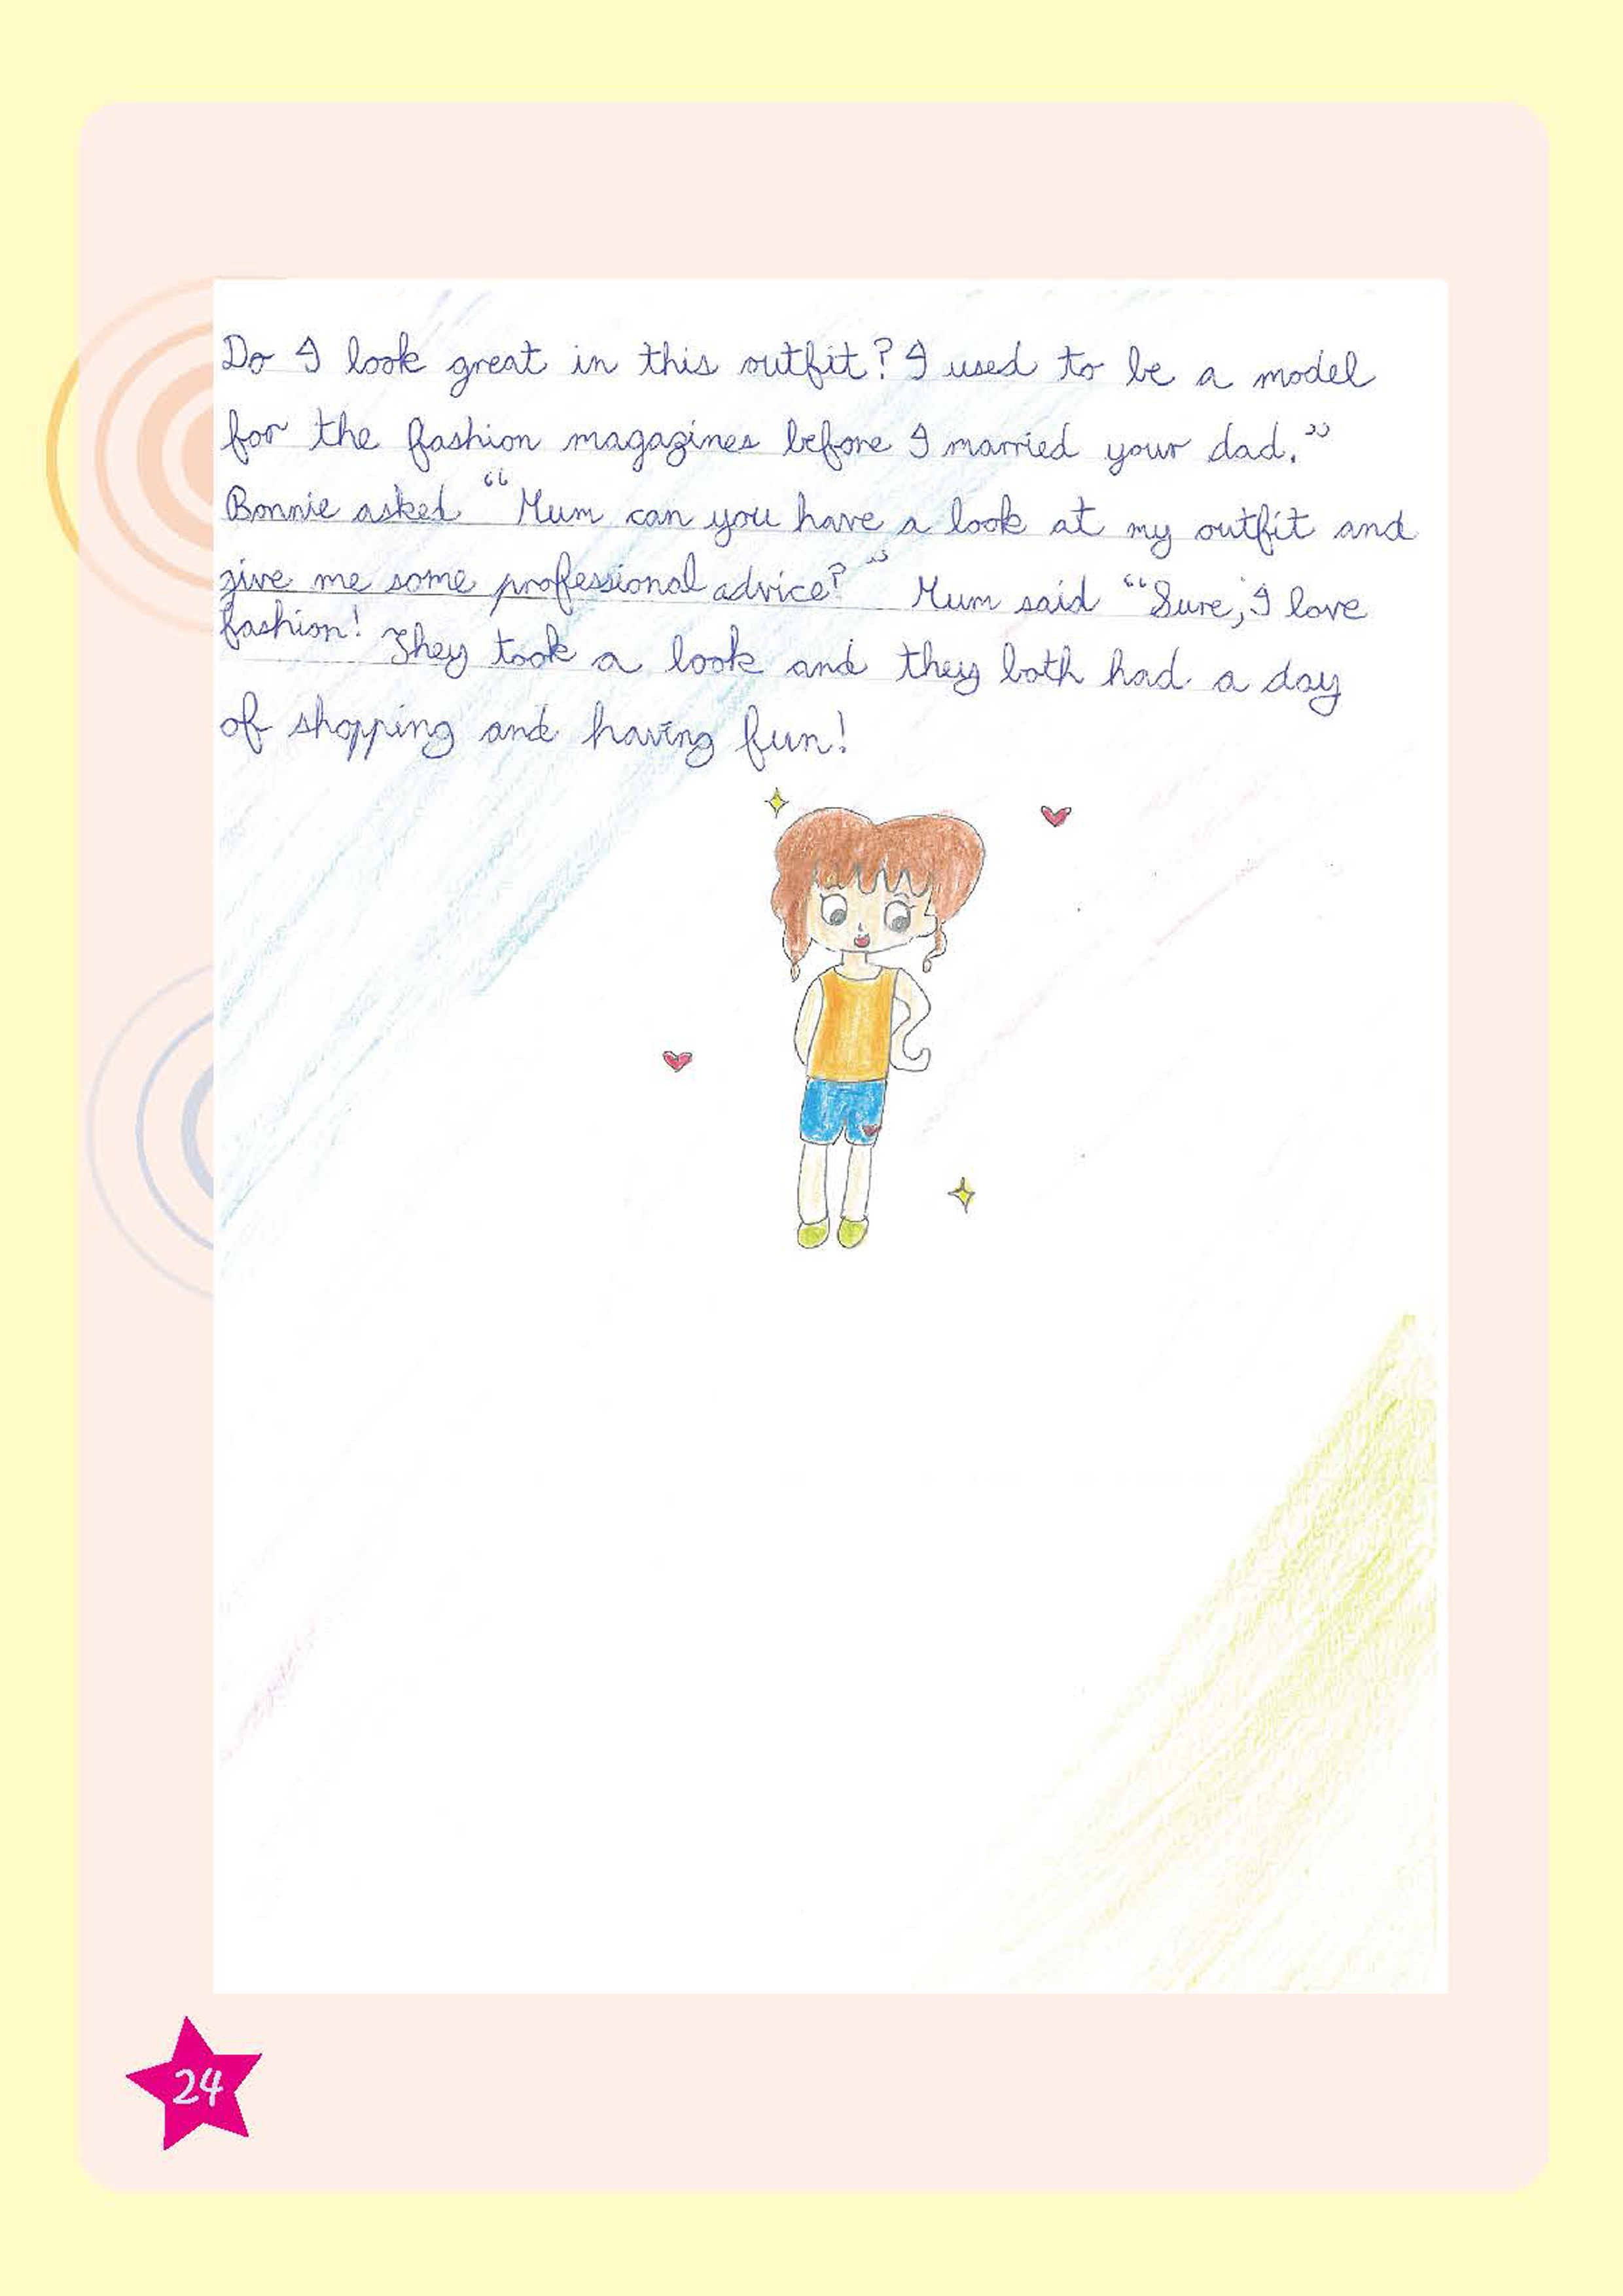 Do I look great in this outfit? I used to be a model
for the fashion magazines before I married your dad."
Bonnie asked "Mum can you have a look at my outfit and
give me some professional advice?" Mum said "Sure, I love
fashion! They took a look and they both had a day
of shopping and having fun!
24